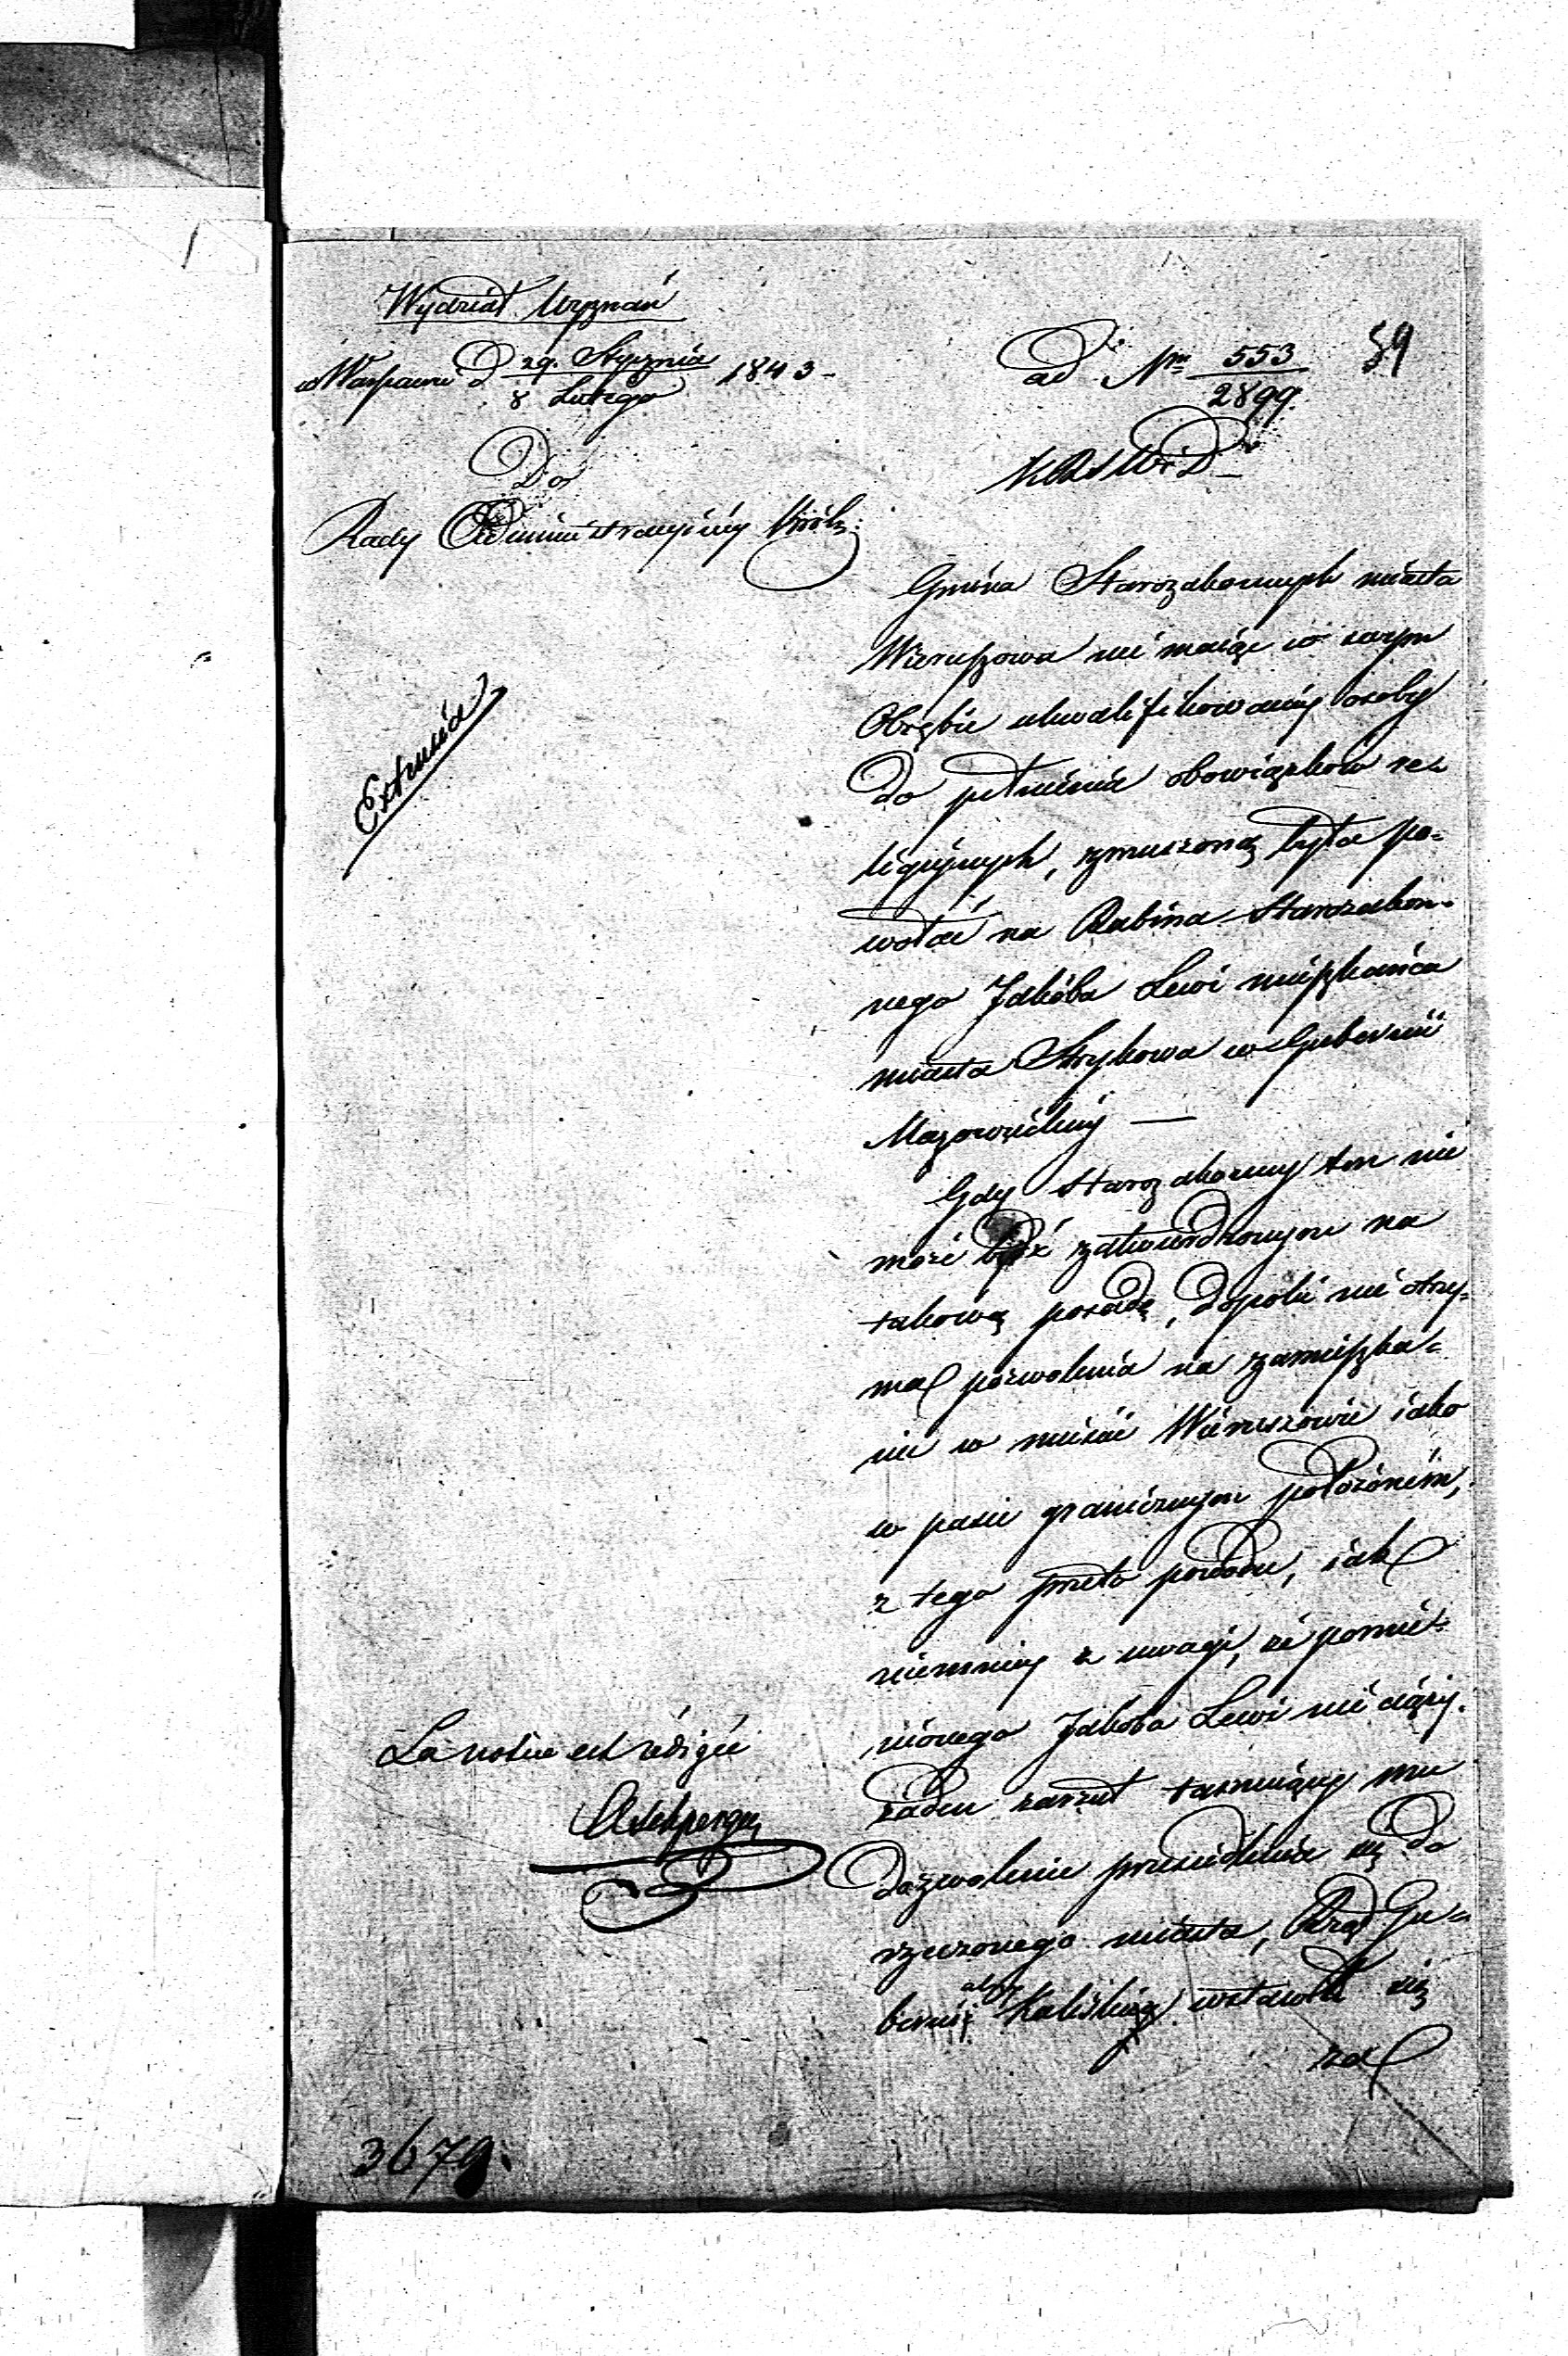 Wydział Wyznań
w Warszawie d 29. Stycznia 1843
8 Lutego
ad Nru 553
2899
59
Do
Rady Administracyiney Król:
KRSWiD
Extensia
Gmina Starozakonnych miasta
Wieruszowa nie maiąc w swym
Obrębie ukwalifikowaney osoby
do pełnienia obowiązków re-
ligijnych, zmuszoną była po=
wołać na Rabina Starozakon-
nego Jakóba Lewi mieszkańca
miasta Strykowa w Gubernii
Mazowieckiey —
Gdy Starozakonny ten nie
może bydź zatwierdzonym na
takową posadę, dopóki nie otrzy=
ma pozwolenia na zamieszka=
nie w mieście Wieruszowie iako
w pasie granicznym położoném,
z tego przeto powodu, iak
niemniey z uwagi, że pomie-
nionego Jakóba Lewi nie ciąży
żaden zarzut tamuiący mu
dozwolenie przesiedlenia się do
rzeczonego miasta, Rząd Gu=
bernii Kaliskiey wstawił się
za
La notice est rédigée
3679.